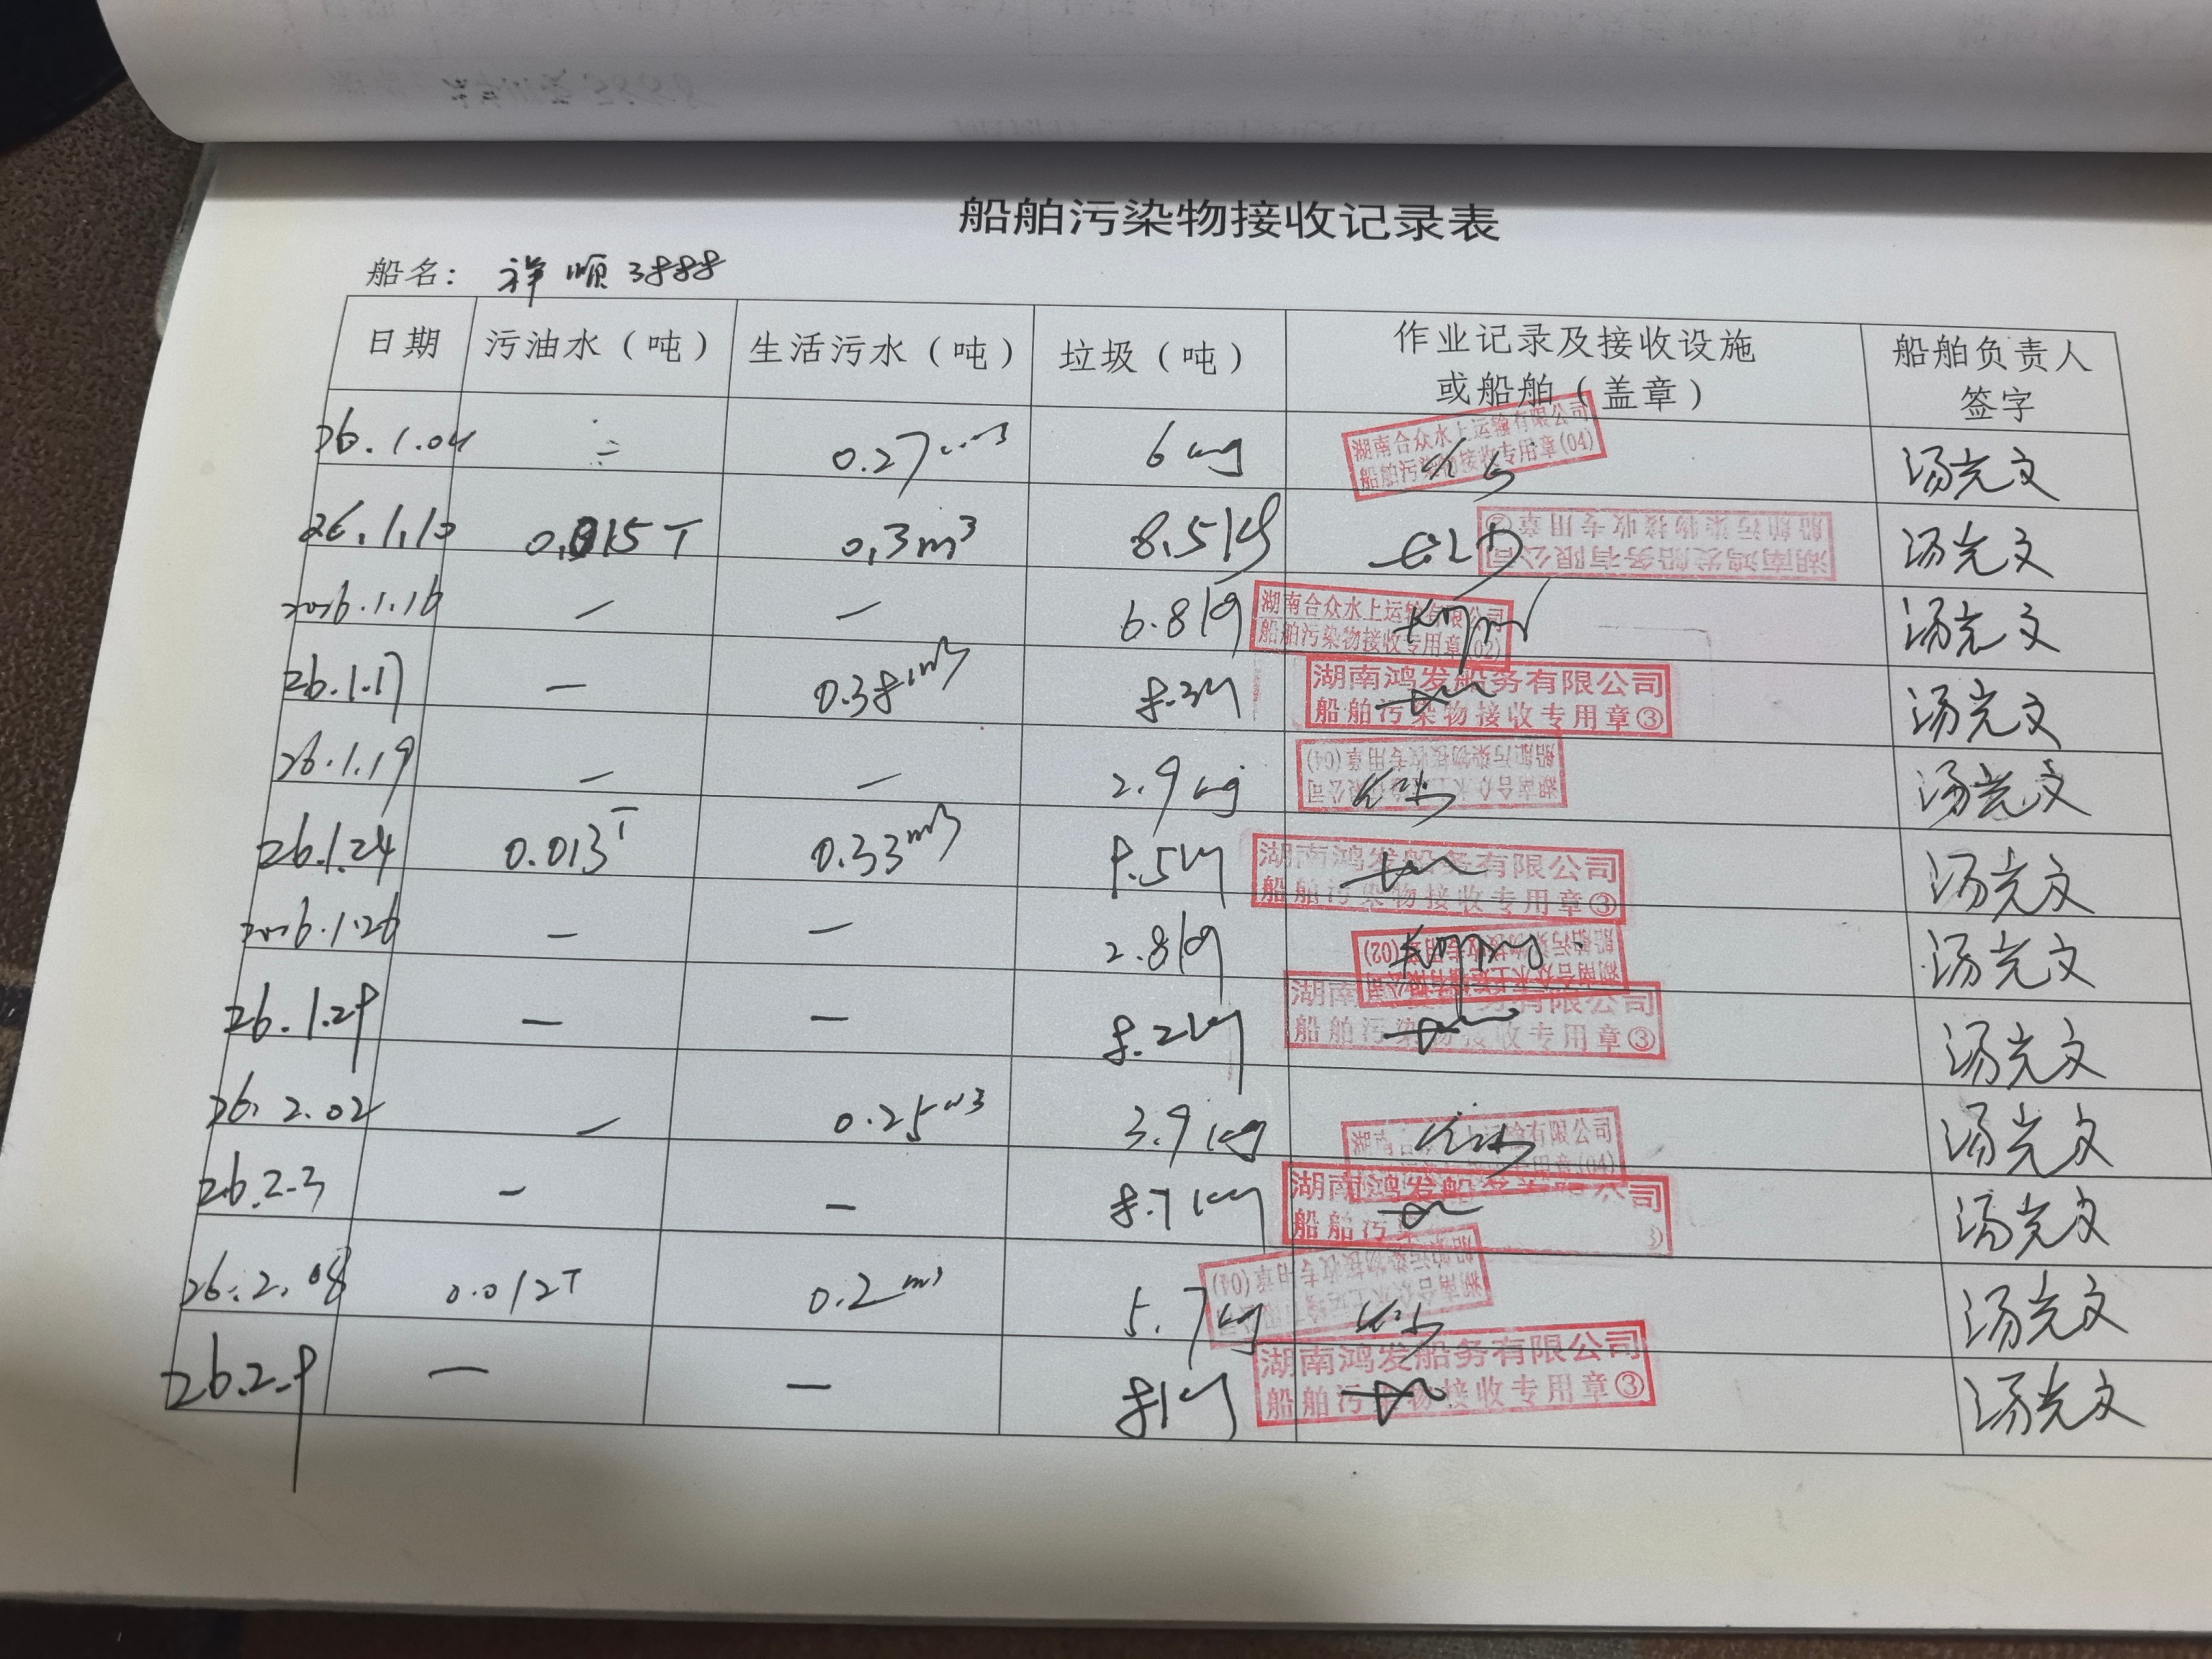 船舶污染物接收记录表
船名： 祥顺3888
日期 污油水（吨） 生活污水（吨） 垃圾（吨） 作业记录及接收设施或船舶（盖章） 船舶负责人签字
26.1.04 — 0.27m³ 6kg 湖南合众水上运输有限公司 船舶污染物接收专用章(04) 汤光文
26.1.10 0.015T 0.3m³ 8.5kg 湖南鸿发船务有限公司 船舶污染物接收专用章② 汤光文
2026.1.16 — — 6.8kg 湖南合众水上运输有限公司 船舶污染物接收专用章(02) 汤光文
26.1.17 — 0.38m³ 8.3kg 湖南鸿发船务有限公司 船舶污染物接收专用章③ 汤光文
26.1.19 — — 2.9kg 湖南合众水上运输有限公司 船舶污染物接收专用章(04) 汤光文
26.1.24 0.013T 0.33m³ 8.5kg 湖南鸿发船务有限公司 船舶污染物接收专用章③ 汤光文
2026.1.26 — — 2.8kg 湖南合众水上运输有限公司 船舶污染物接收专用章(02) 汤光文
26.1.29 — — 8.2kg 湖南鸿发船务有限公司 船舶污染物接收专用章③ 汤光文
26.2.02 — 0.25m³ 3.9kg 上运输有限公司 (04) 汤光文
26.2.3 — — 8.7kg 湖南鸿发船务有限公司 船舶污 汤光文
26.2.08 0.012T 0.2m³ 5.7kg 湖南合众水上运输有限公司 船舶污染物接收专用章(04) 汤光文
26.2.9 — — 8.1kg 湖南鸿发船务有限公司 船舶污染物接收专用章③ 汤光文